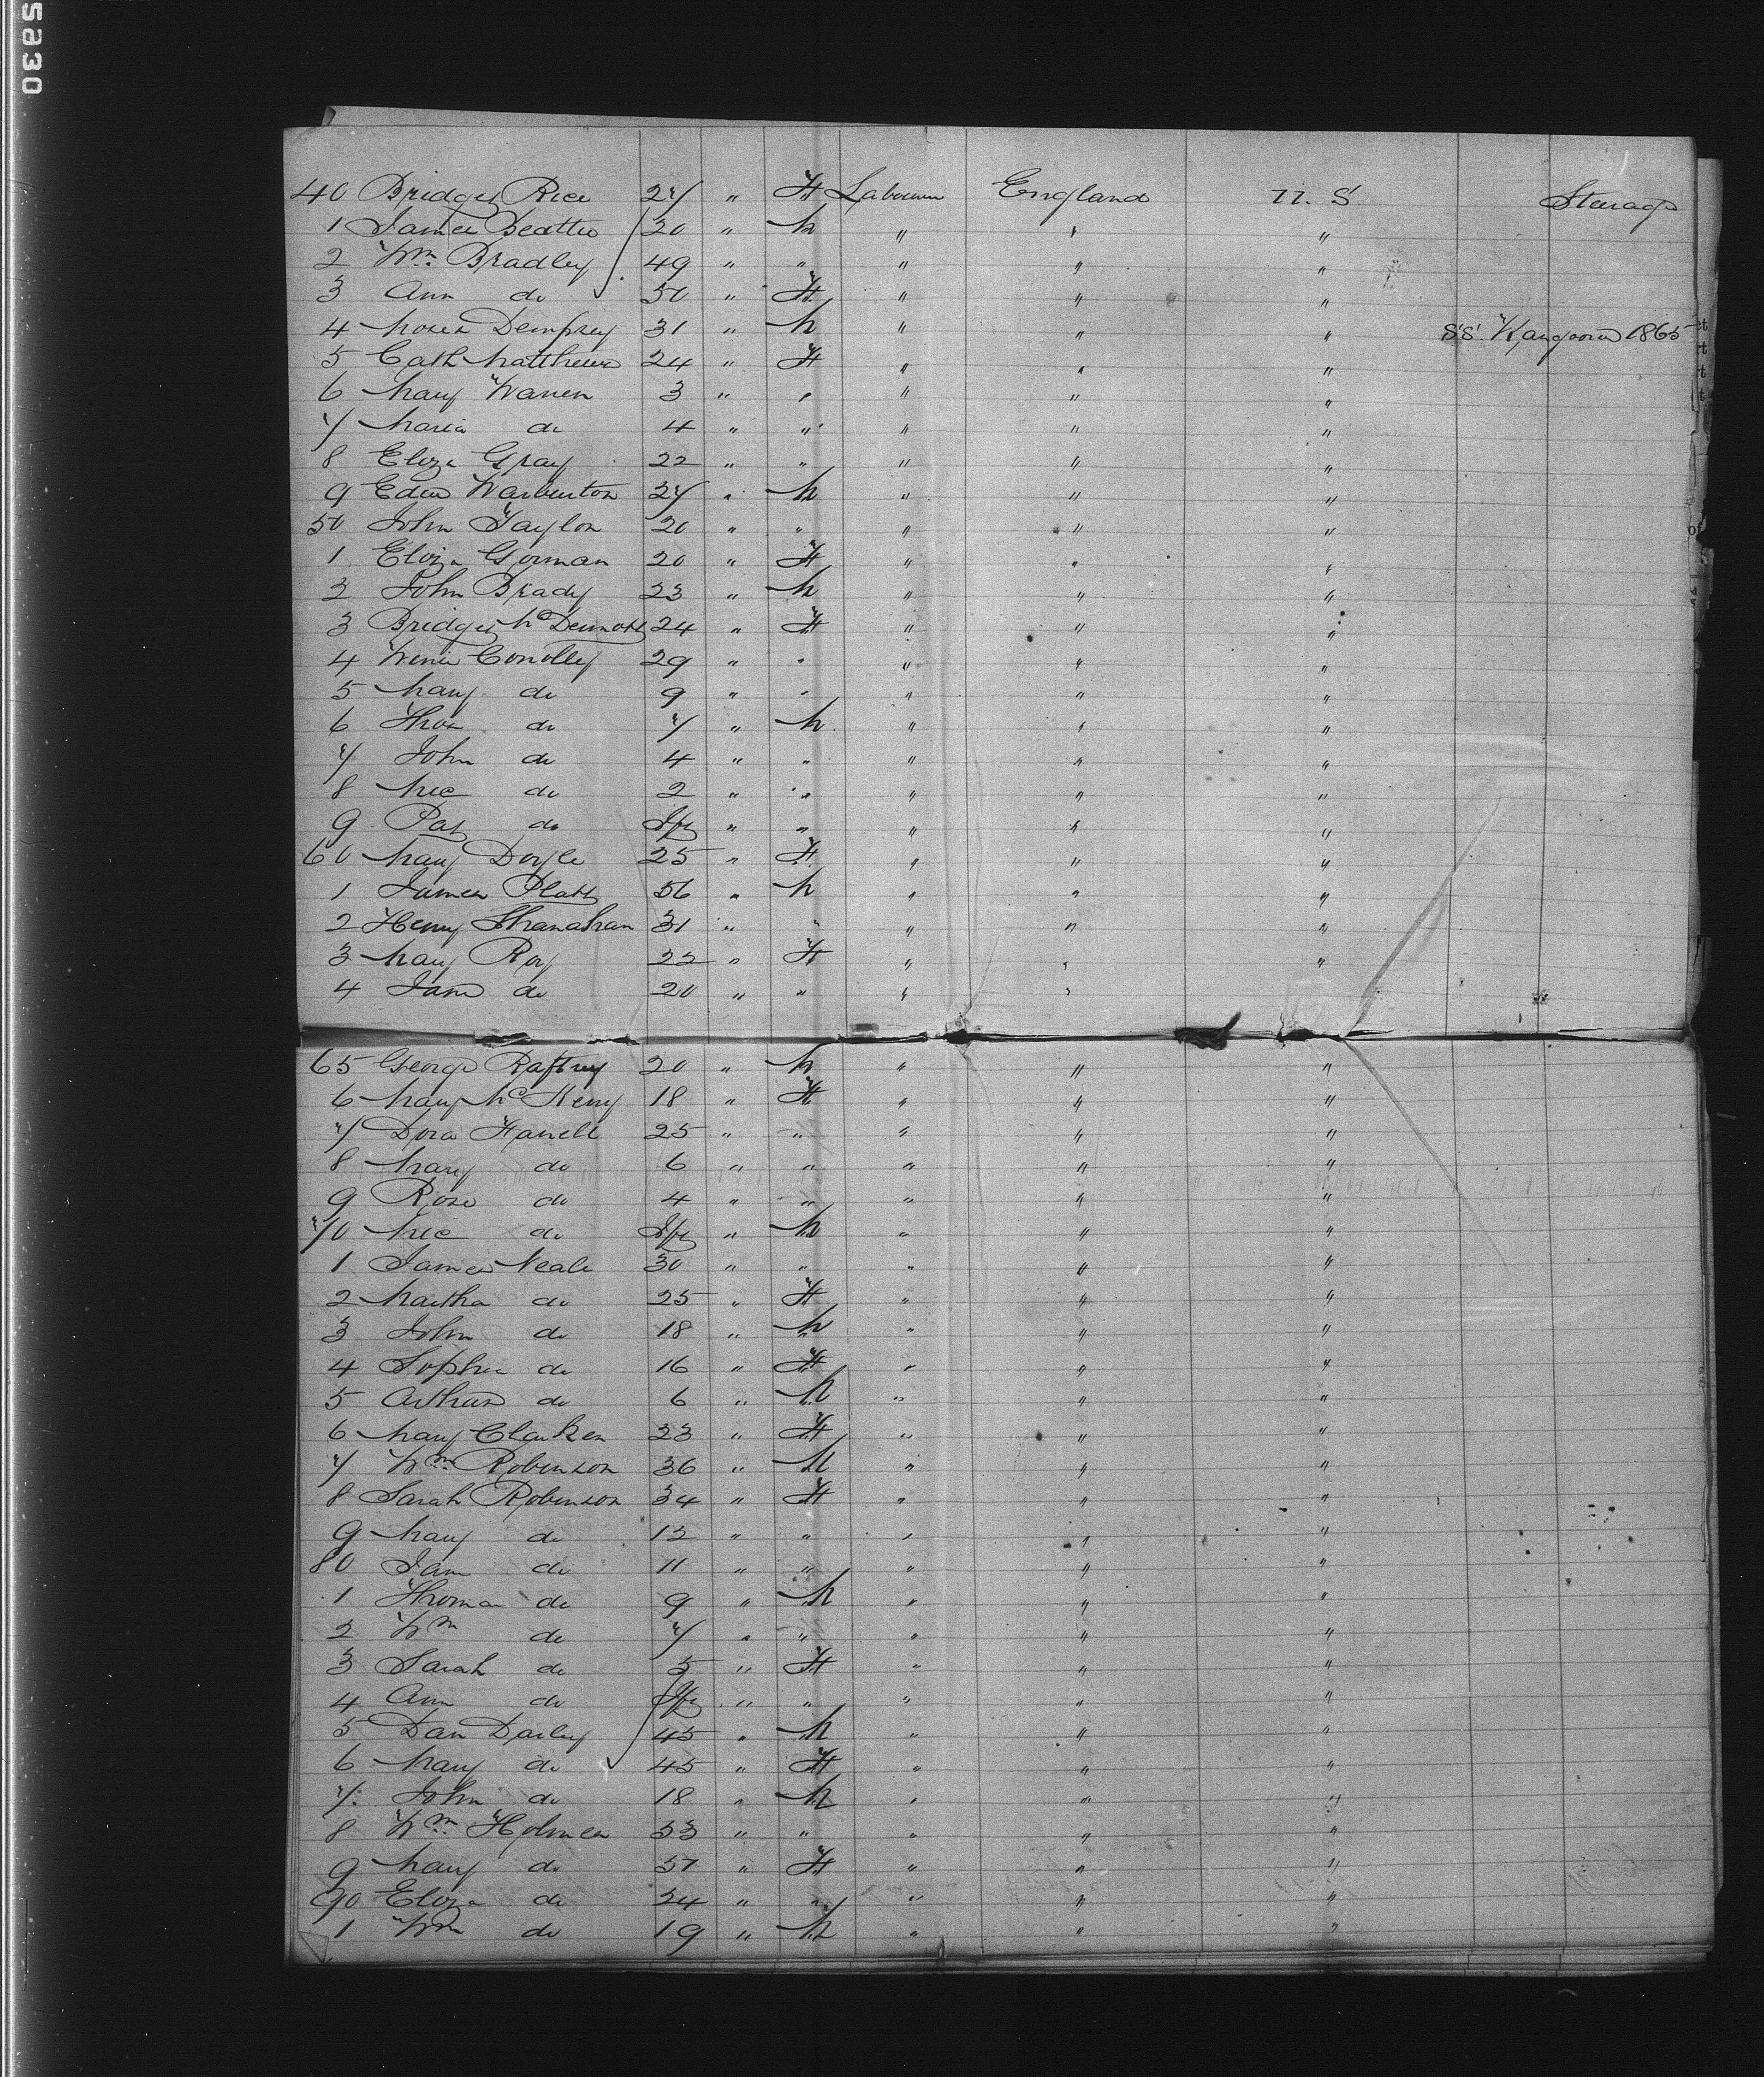 5a30
40 Bridget Rice 27 " F Labourer England U. S. Steerage
1 James Beattie 20 " M " " "
2 Wm Bradley 49 " " " " "
3 Ann do 50 " F " " "
4 Moses Dempsey 31 " M " " " SS. Kangaroo 1865
5 Cath Matthews 24 " F " " "
6 Mary Warren 3 " " " " "
7 Maria do 4 " " " " "
8 Eliza Gray 22 " " " " "
9 Edwd Warburton 27 " M " " "
50 John Taylor 20 " " " " "
1 Eliza Gorman 20 " F " " "
2 John Brady 23 " M " " "
3 Bridget McDermott 24 " F " " "
4 Winie Conolley 29 " " " " "
5 Mary do 9 " " " " "
6 Thos do 7 " M " " "
7 John do 4 " " " " "
8 Mic do 2 " " " " "
9 Pat do Inft " " " " "
60 Mary Doyle 25 " F " " "
1 James Platt 56 " M " " "
2 Henry Shanahan 31 " " " " "
3 Mary Roy 22 " F " " "
4 Jane do 20 " " " "
65 George Raftrey 20 " M " " "
6 Mary McKeny 18 " F " " "
7 Dora Farrell 25 " " " " "
8 Mary do 6 " " " " "
9 Rose do 4 " " " " "
70 Mic do Inft " M " " "
1 James Neale 30 " " " " "
2 Martha do 25 " F " " "
3 John do 18 " M " " "
4 Sophia do 16 " F " " "
5 Arthur do 6 " M " " "
6 Mary Clarken 23 " F " " "
7 Wm Robinson 36 " M " " "
8 Sarah Robinson 34 " F " " "
9 Mary do 12 " " " " "
80 Jane do 11 " " " " "
1 Thomas do 9 " M " " "
2 Wm do 7 " " " " "
3 Sarah do 5 " F " " "
4 Ann do Inft " " " " "
5 Dan Darley 45 " M " " "
6 Mary do 45 " F " " "
7 John do 18 " M " " "
8 Wm Holmes 53 " " " " "
9 Mary do 57 " F " " "
90 Eliza do 24 " " " " "
1 Wm do 19 " M " " "